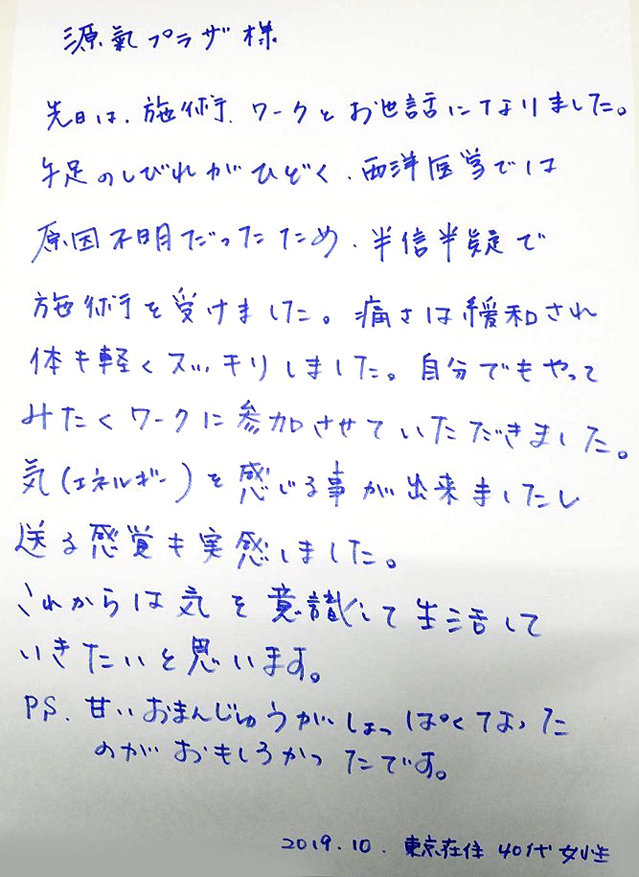 源氣プラザ様
先日は、施術、ワークとお世話になりました。
手足のしびれがひどく、西洋医学では
原因不明だったため、半信半疑で
施術を受けました。痛さは緩和され
体も軽くスッキリしました。自分でもやって
みたくワークに参加させていただきました。
気(エネルギー)を感じる事が出来ましたし
送る感覚も実感しました。
これからは気を意識して生活して
いきたいと思います。
P.S. 甘いおまんじゅうがしょっぱくなった
のがおもしろかったです。
2019.10. 東京在住 40代 女性